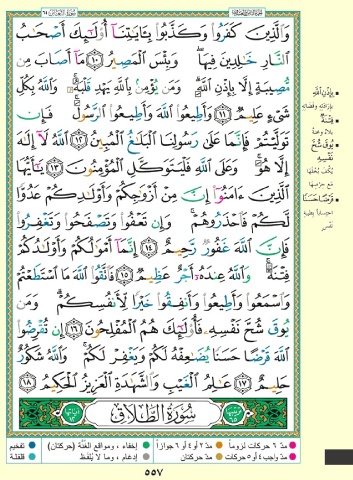 وَالَّذِينَ كَفَرُوا وَكَذَّبُوا بِـَٔايَـٰتِنَآ أُولَـٰٓئِكَ أَصْحَـٰبُ
النَّارِ خَـٰلِدِينَ فِيهَا ۖ وَبِئْسَ الْمَصِيرُ ١٠ مَآ أَصَابَ مِن
مُّصِيبَةٍ إِلَّا بِإِذْنِ اللَّهِ ۗ وَمَن يُؤْمِنۢ بِاللَّهِ يَهْدِ قَلْبَهُۥ ۚ وَاللَّهُ بِكُلِّ
شَىْءٍ عَلِيمٌ ١١ وَأَطِيعُوا اللَّهَ وَأَطِيعُوا الرَّسُولَ ۚ فَإِن
تَوَلَّيْتُمْ فَإِنَّمَا عَلَىٰ رَسُولِنَا الْبَلَـٰغُ الْمُبِينُ ١٢ اللَّهُ لَآ إِلَـٰهَ
إِلَّا هُوَ ۚ وَعَلَى اللَّهِ فَلْيَتَوَكَّلِ الْمُؤْمِنُونَ ١٣ يَـٰٓأَيُّهَا
الَّذِينَ ءَامَنُوٓا إِنَّ مِنْ أَزْوَٰجِكُمْ وَأَوْلَـٰدِكُمْ عَدُوًّا
لَّكُمْ فَاحْذَرُوهُمْ ۚ وَإِن تَعْفُوا وَتَصْفَحُوا وَتَغْفِرُوا
فَإِنَّ اللَّهَ غَفُورٌ رَّحِيمٌ ١٤ إِنَّمَآ أَمْوَٰلُكُمْ وَأَوْلَـٰدُكُمْ
فِتْنَةٌ ۚ وَاللَّهُ عِندَهُۥٓ أَجْرٌ عَظِيمٌ ١٥ فَاتَّقُوا اللَّهَ مَا اسْتَطَعْتُمْ
وَاسْمَعُوا وَأَطِيعُوا وَأَنفِقُوا خَيْرًا لِّأَنفُسِكُمْ ۗ وَمَن
يُوقَ شُحَّ نَفْسِهِۦ فَأُولَـٰٓئِكَ هُمُ الْمُفْلِحُونَ ١٦ إِن تُقْرِضُوا
اللَّهَ قَرْضًا حَسَنًا يُضَـٰعِفْهُ لَكُمْ وَيَغْفِرْ لَكُمْ ۚ وَاللَّهُ شَكُورٌ
حَلِيمٌ ١٧ عَـٰلِمُ الْغَيْبِ وَالشَّهَـٰدَةِ الْعَزِيزُ الْحَكِيمُ ١٨
سُورَةُ الطَّلَاقِ
بِإِذْنِ اللَّهِ
بإرادته وقضائه
فِتْنَةٌ
بلاءٌ ومحنة
يُوقَ شُحَّ
نَفْسِهِ
قَرْضًا حَسَنًا
مدّ ٦ حركات لزوماً
مدّ ٢ أو ٤ أو ٦ جوازاً
إخفاء، ومواقع الغُنَّة (حركتان)
تفخيم
مدّ واجب ٤ أو ٥ حركات
مدّ حركتان
إدغام، وما لا يُلفَظ
قلقلة
٥٥٧